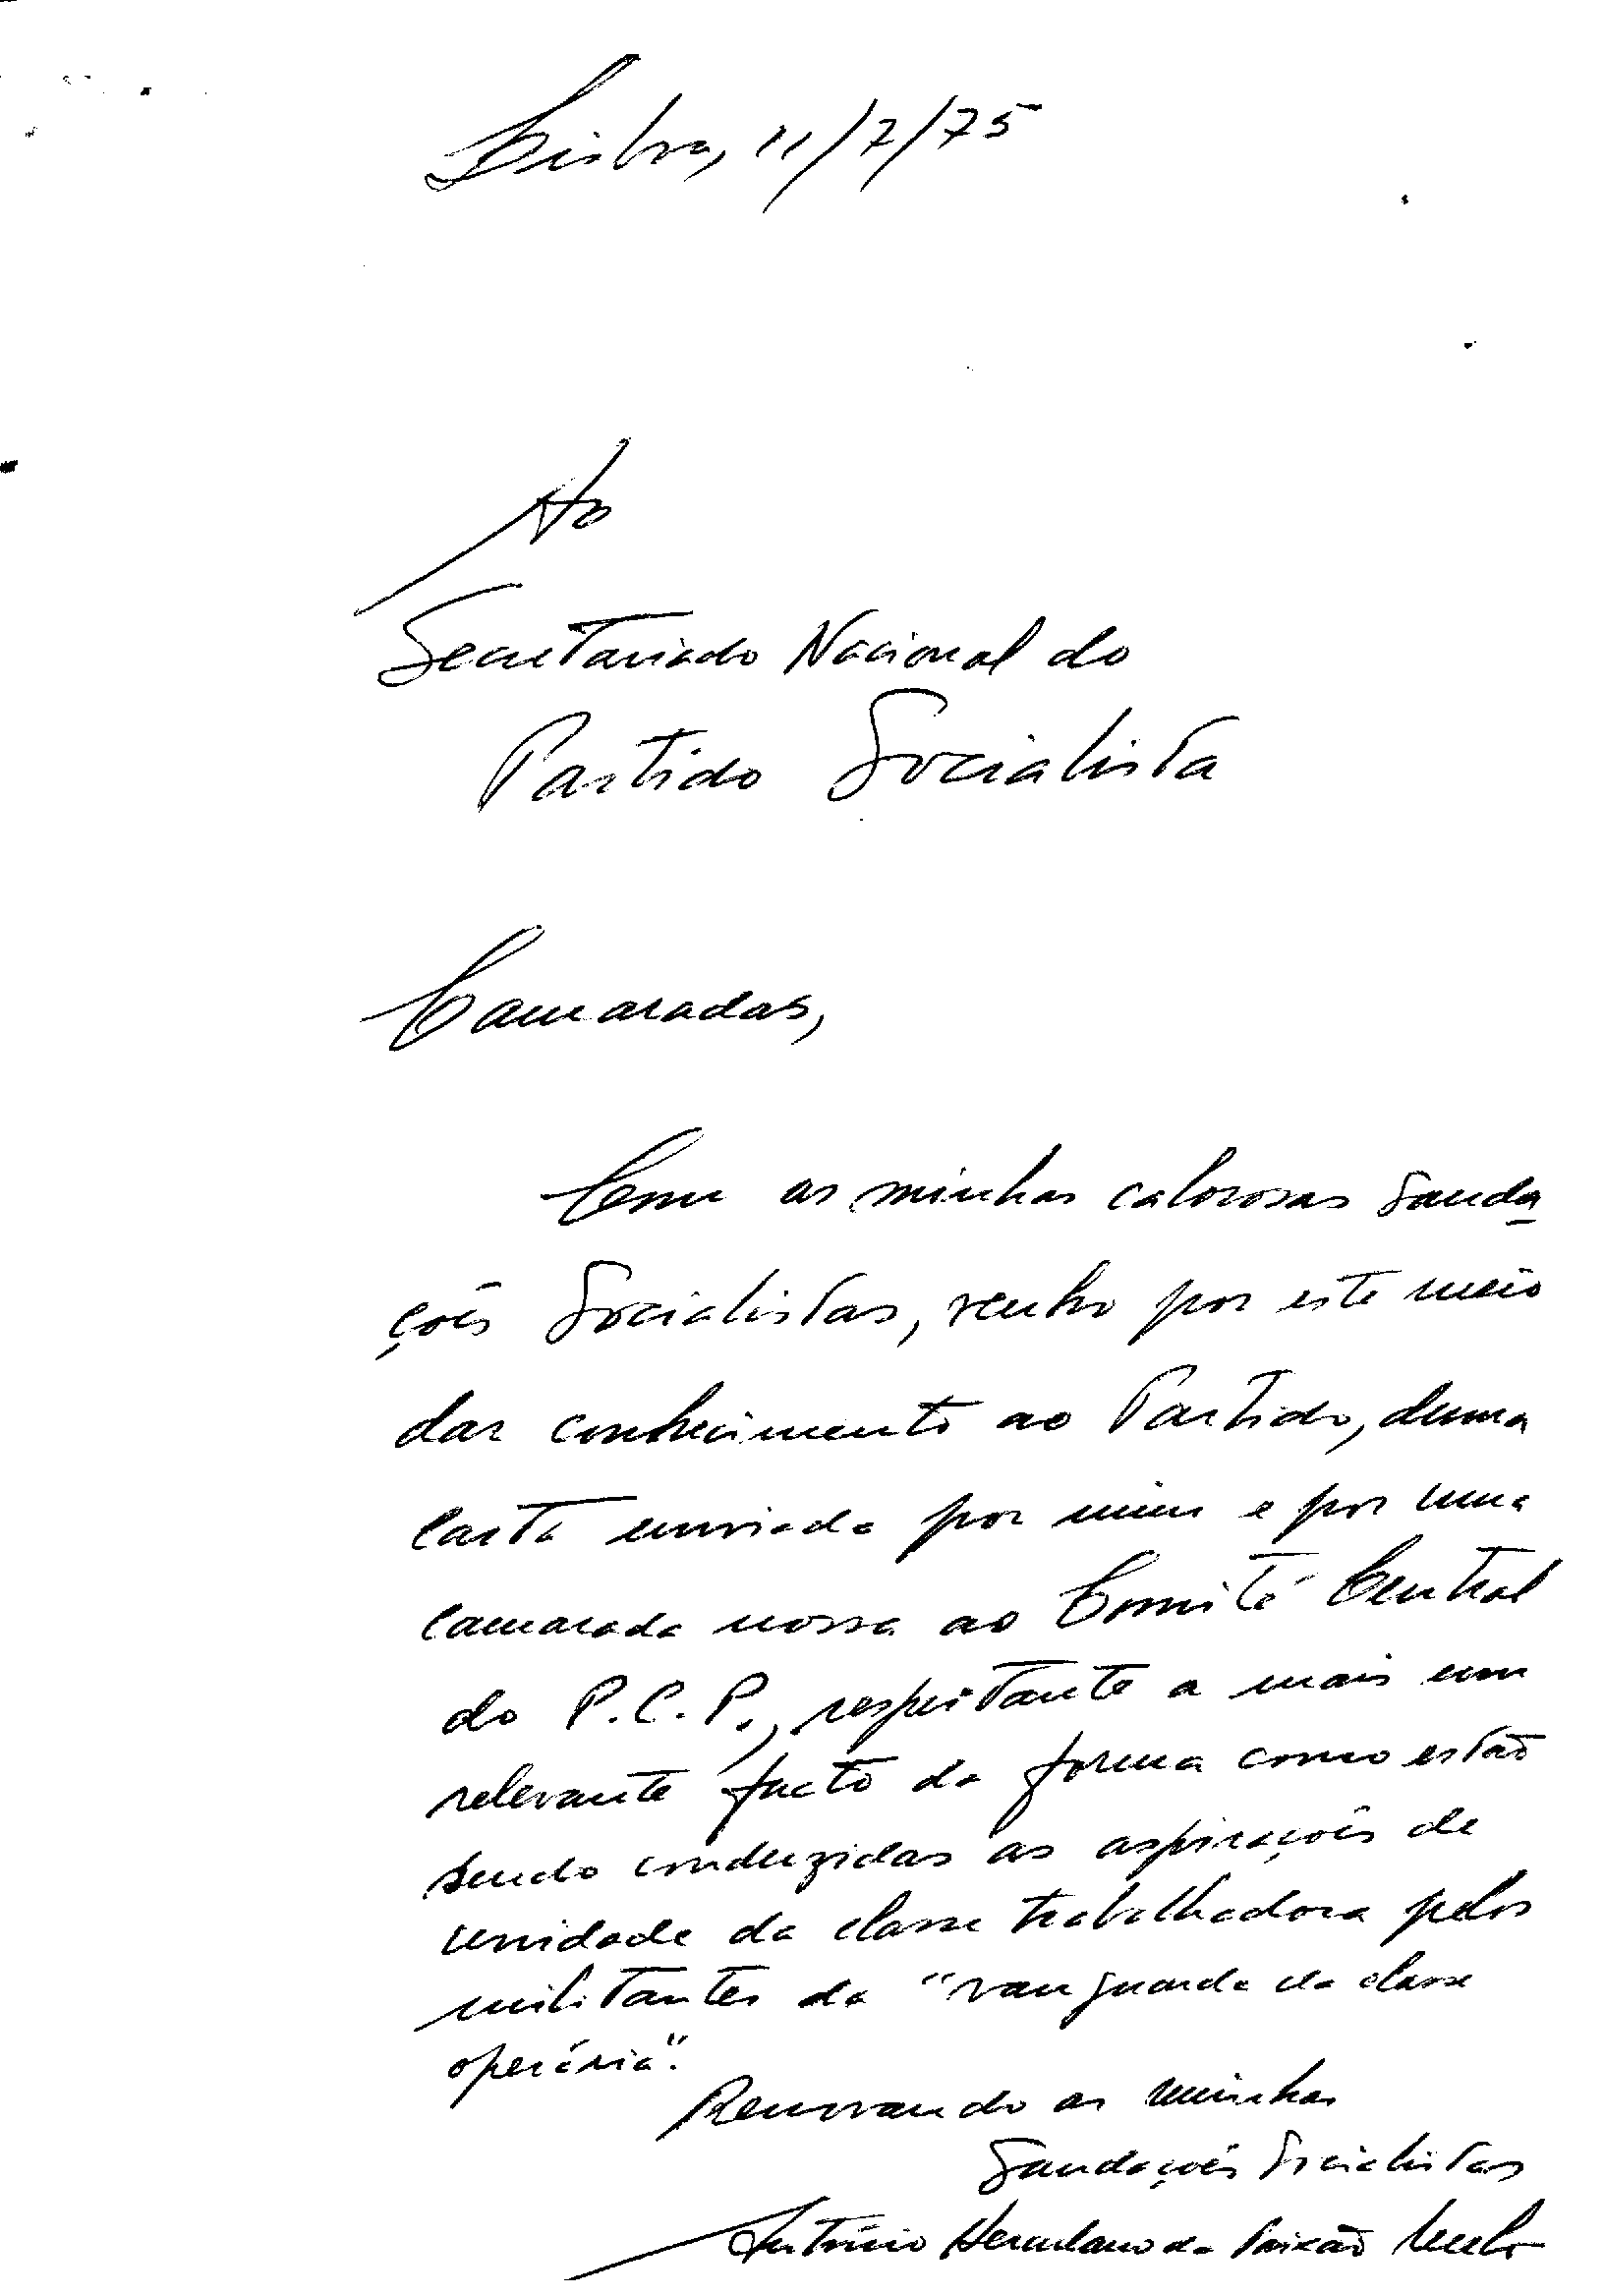 Lisboa, 11/7/75
Ao
Secretariado Nacional do
Partido Socialista
Camaradas,
Com as minhas calorosas sauda
ções Socialistas, venho por este meio
dar conhecimento ao Partido, duma
carta enviada por mim e por uma
camarada nossa ao Comité Central
do P.C.P., respeitante a mais um
relevante facto da forma como estão
sendo conduzidas as aspirações de
unidade da classe trabalhadora pelos
militantes da "vanguarda da classe
operária".
Renovando as minhas
Saudações Socialistas
António Herculano da Paixão